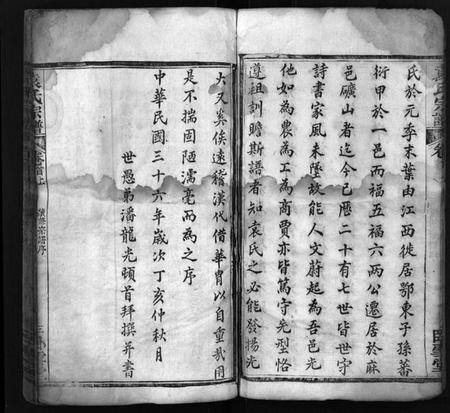 氏於元季末葉由江西徙居鄂東子孫蕃
衍甲於一邑而福五福六兩公遷居於麻
邑礦山者迄今已歷二十有七世皆世守
詩書家風未墜故能人文蔚起為吾邑光
他如為農為工為商賈亦皆篤守先型恪
遵祖訓瞻斯譜者知袁氏之必能發揚光
大又奚俟遠稽漢代借華胄以自重哉用
是不揣固陋濡毫而為之序
中華民國三十六年歲次丁亥仲秋月
世愚弟潘龍光頤首拜撰并書
袁氏宗譜
卷首上
臥雪堂